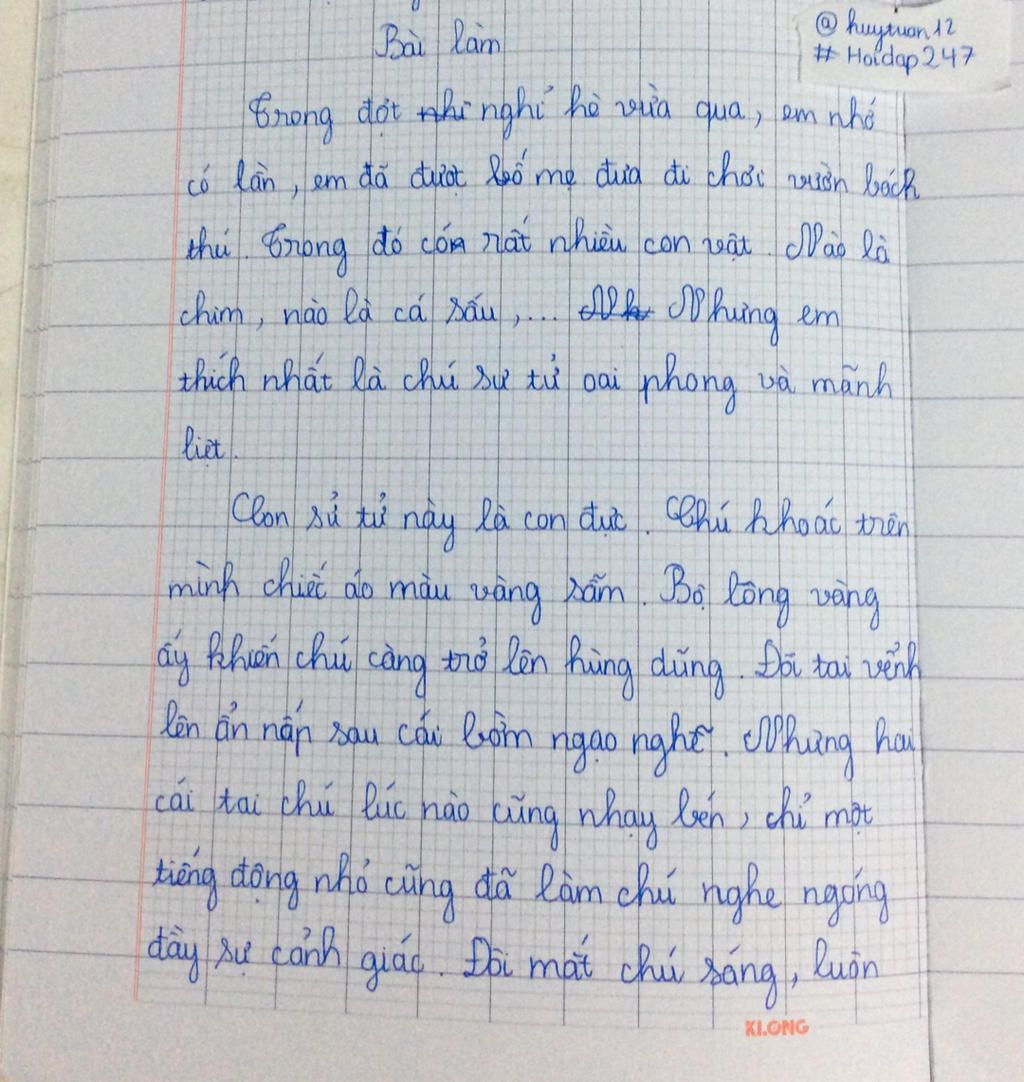 Bài làm
@huytuan12
#Hoidap247
Trong đợt nhi nghỉ hè vừa qua, em nhớ
có lần, em đã được bố mẹ đưa đi chơi vườn bách
thú. Trong đó còn rất nhiều con vật. Nào là
chim, nào là cá sấu,... Nh Nhưng em
thích nhất là chú sư tử oai phong và mãnh
liệt.
Con sử tử này là con đực. Chú khoác trên
mình chiếc áo màu vàng sẫm. Bộ lông vàng
ấy khiến chú càng trở lên hùng dũng. Đôi tai vểnh
lên ẩn nấp sau cái bờm ngạo nghễ. Nhưng hai
cái tai chú lúc nào cũng nhạy bén, chỉ một
tiếng động nhỏ cũng đã làm chú nghe ngóng
đầy sự cảnh giác. Đôi mắt chú sáng, luôn
KLONG